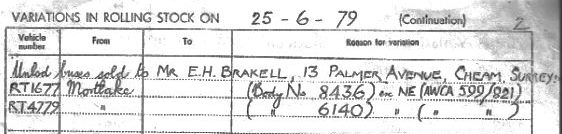 VARIATIONS IN ROLLING STOCK ON 25 - 6 - 79 (Continuation) 2
Vehicle number From To Reason for variation
Unlxd buses sold to MR E.H. BRAKELL, 13 PALMER AVENUE, CHEAM, SURREY.
RT1677 Mortlake (Body No 8436) ex NE (AWCA 599/821)
RT4779 " ( " 6140) " ( " " )